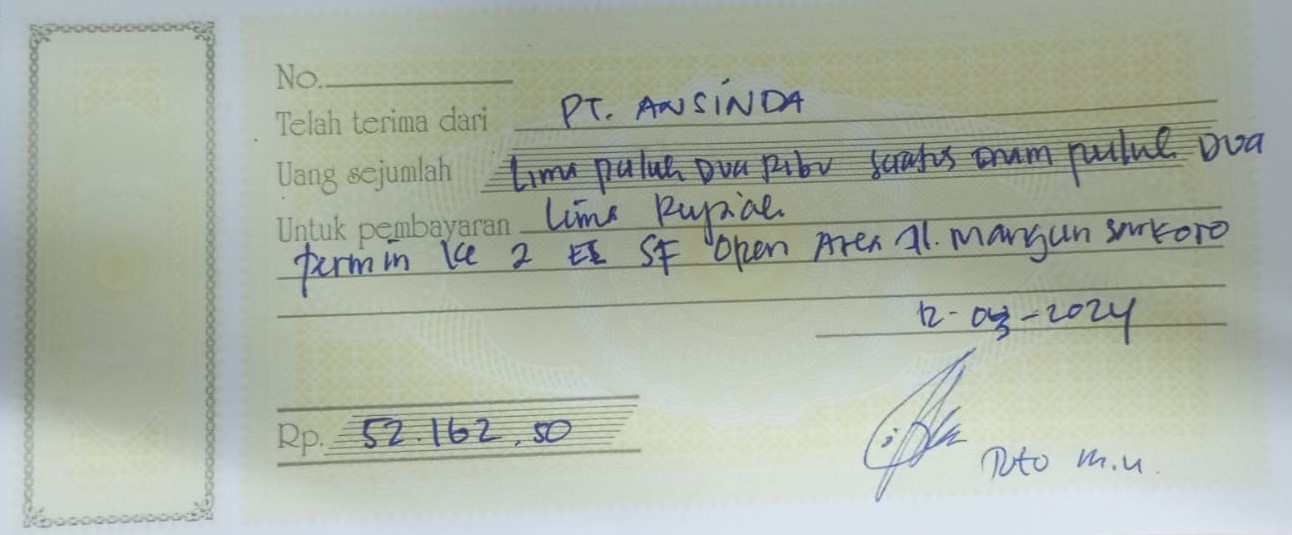 No.
Telah terima dari PT. ANSINDA
Uang sejumlah Lima puluh Dua Ribu seratus enam puluh Dua
Untuk pembayaran Lima Rupiah
termin ke 2 SF Open Area Jl. Mangun sarkoro
12-03-2024
Rp. 52.162,50
M.U.